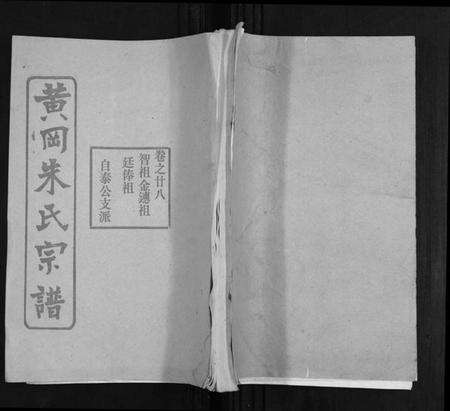 黃岡朱氏宗譜
卷之廿八
智祖金璁祖
廷俸祖
自泰公支派